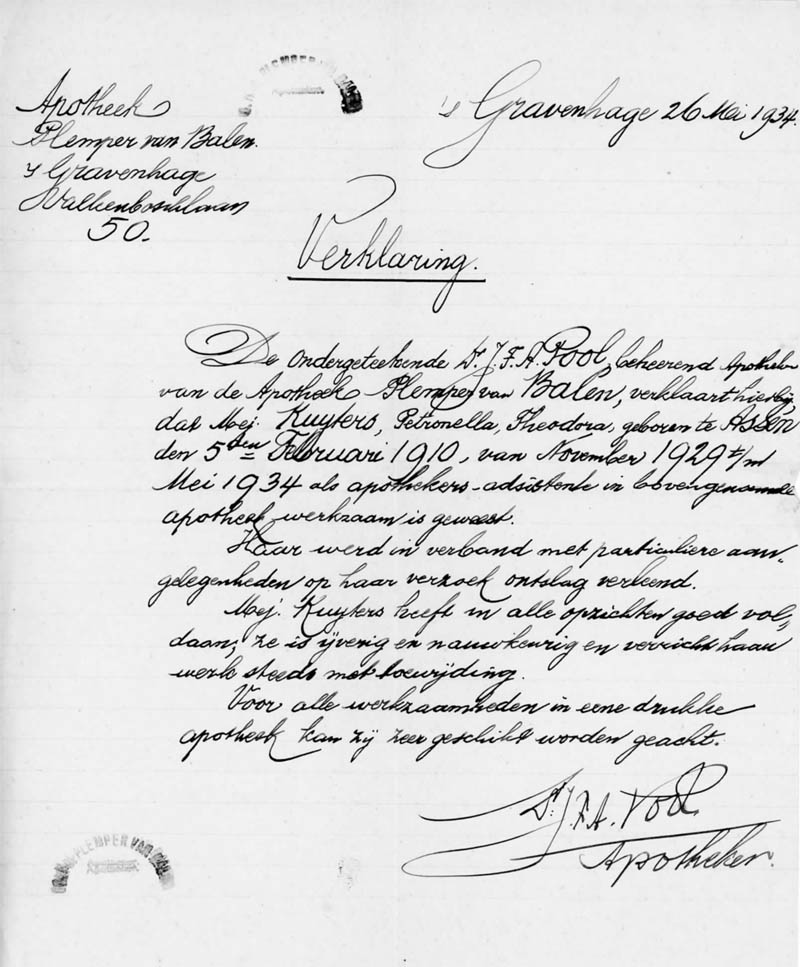 Apotheek
Plemper van Balen.
's Gravenhage
Valkenboschlaan
50.-
PLEMPER VAN BALEN
Apotheker
's Gravenhage 26 Mei 1934.
Verklaring.
De ondergeteekende Dr. J.F.A. Pool, beheerend Apotheker
van de Apotheek Plemper van Balen, verklaart hierbij,
dat Mej. Kuyters, Petronella, Theodora, geboren te Assen
den 5den Februari 1910, van November 1929 t/m
Mei 1934 als apothekers-adsistente in bovengenoemde
apotheek werkzaam is geweest.
Haar werd in verband met particuliere aan-
gelegenheden op haar verzoek ontslag verleend.
Mej. Kuyters heeft in alle opzichten goed vol-
daan; ze is ijverig en nauwkeurig en verricht haar
werk steeds met toewijding.
Voor alle werkzaamheden in eene drukke
apotheek kan zij zeer geschikt worden geacht.
Dr. J.F.A. Pool.
Apotheker.
PLEMPER VAN